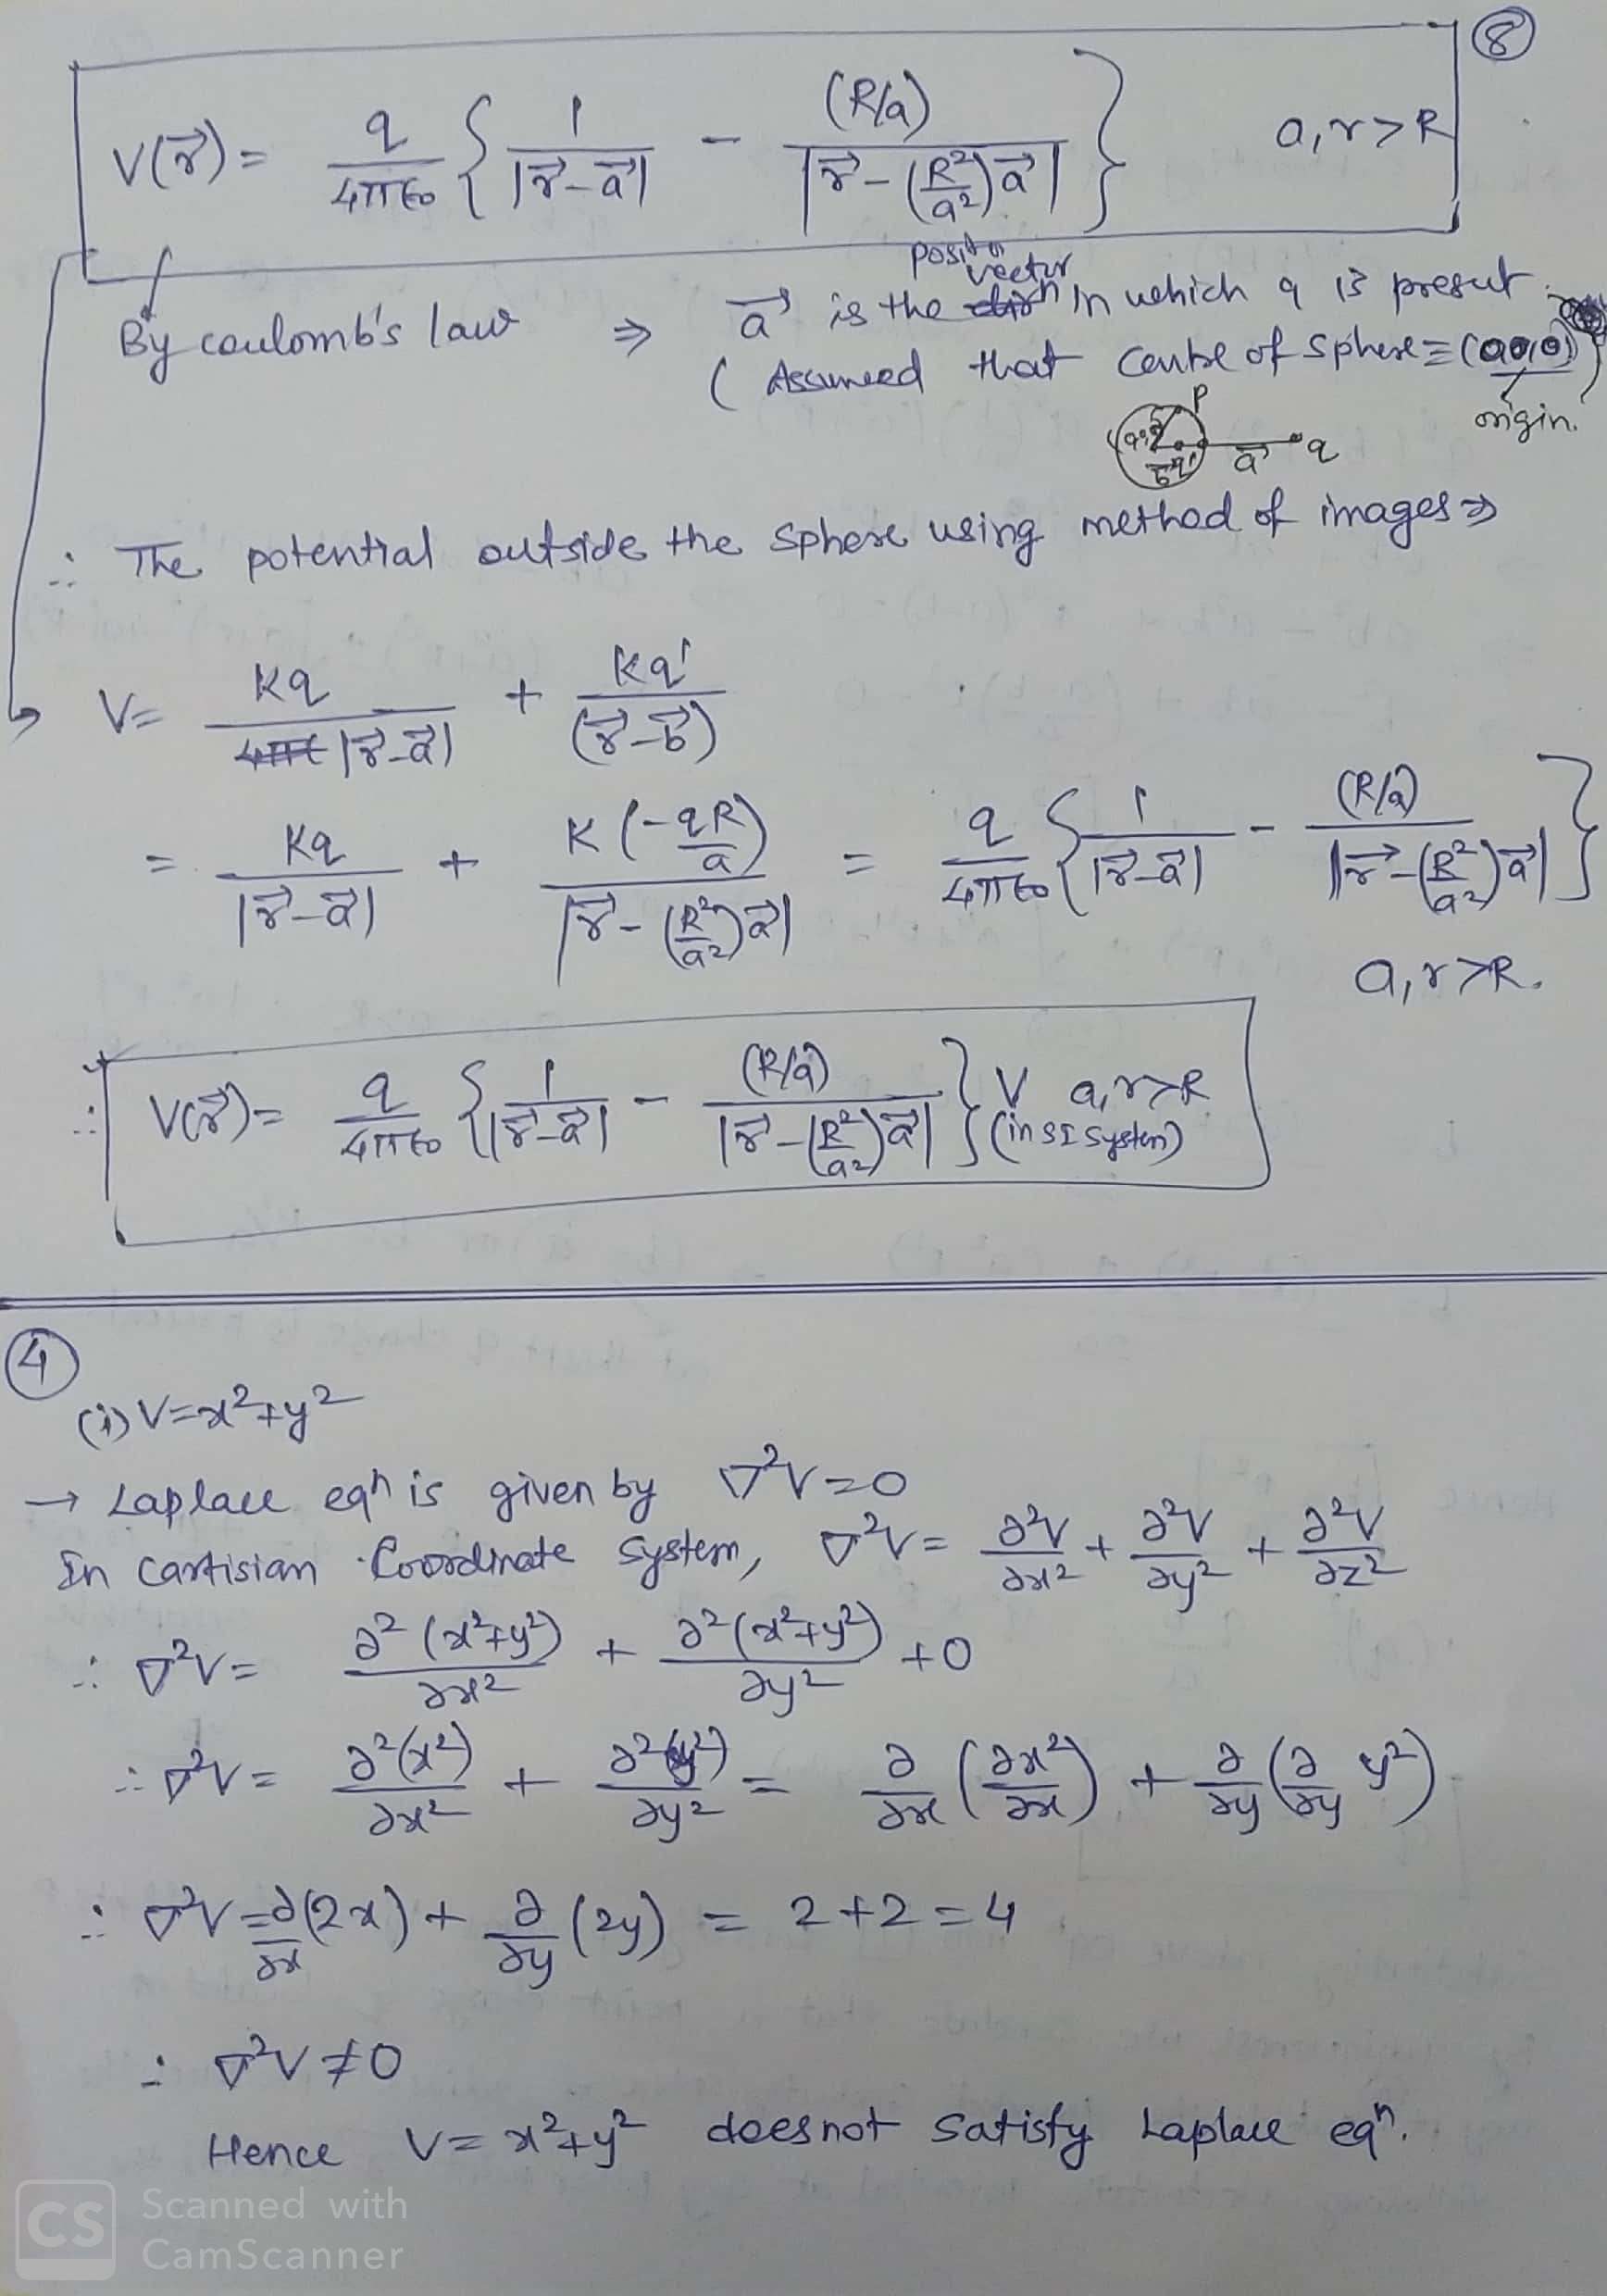 8
V(r⃗) = q/4πϵ₀ { 1/|r⃗-a⃗| - (R/a)/|r⃗-(R²/a²)a⃗| } a,r>R
By coulomb's law ⇒ a⃗ is the position vector in which q is present.
(Assumeed that centre of sphere = (0,0,0)
origin.
P
a⃗ q
∴ The potential outside the sphere using method of images ⇒
V = Kq/|r⃗-a⃗| + Kq'/(r⃗-b⃗)
= Kq/|r⃗-a⃗| + K(-qR/a)/|r⃗-(R²/a²)a⃗| = q/4πϵ₀ { 1/|r⃗-a⃗| - (R/a)/|r⃗-(R²/a²)a⃗| }
a,r>R.
∴ V(r⃗) = q/4πϵ₀ { 1/|r⃗-a⃗| - (R/a)/|r⃗-(R²/a²)a⃗| } ∀ a,r>R
(in SI system)
4
(i) V=x²+y²
→ Laplace eqⁿ is given by ∇²V=0
In Cartisian Coordinate system, ∇²V = ∂²V/∂x² + ∂²V/∂y² + ∂²V/∂z²
∴ ∇²V = ∂²(x²+y²)/∂x² + ∂²(x²+y²)/∂y² + 0
∴ ∇²V = ∂²(x²)/∂x² + ∂²(y²)/∂y² = ∂/∂x (∂x²/∂x) + ∂/∂y (∂/∂y y²)
∴ ∇²V = ∂/∂x (2x) + ∂/∂y (2y) = 2+2=4
∴ ∇²V ≠ 0
Hence V = x²+y² does not satisfy Laplace eqⁿ.
CS Scanned with
CamScanner